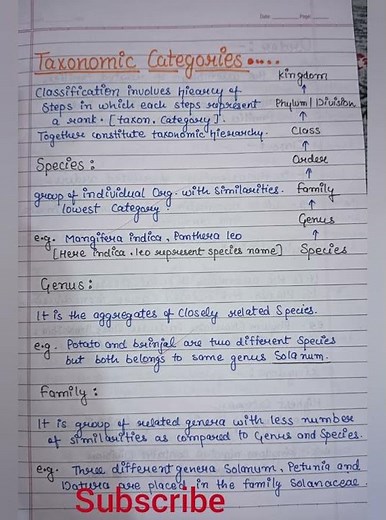 Date            Page
Taxonomic Categories.....
Kingdom
↑
Classification involves hiearcy of
Steps in which each steps represent
Phylum/Division
a rank. [taxon. Category].
↑
Together constitute taxonomic hierarchy.
Class
↑
Order
Species:
↑
group of individual Org. with Similarities.
Family
lowest Category.
↑
Genus
e.g. Mangifera indica, Panthera leo
↑
[Here indica, leo represent species name]
Species
Genus:
It is the aggregates of Closely related Species.
e.g. Potato and brinjal are two different Species
but both belongs to same genus Solanum.
Family:
It is group of related genera with less number
of similarities as compared to Genus and Species.
e.g. Three different genera Solanum, Petunia and
Datura are placed in the family Solanaceae.
Subscribe